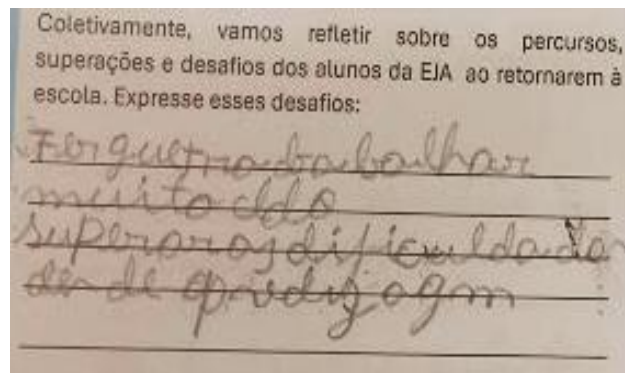 Coletivamente, vamos refletir sobre os percursos,
superações e desafios dos alunos da EJA ao retornarem à
escola. Expresse esses desafios:
Ter que trabalhar
muito
superar as dificuldada
des de